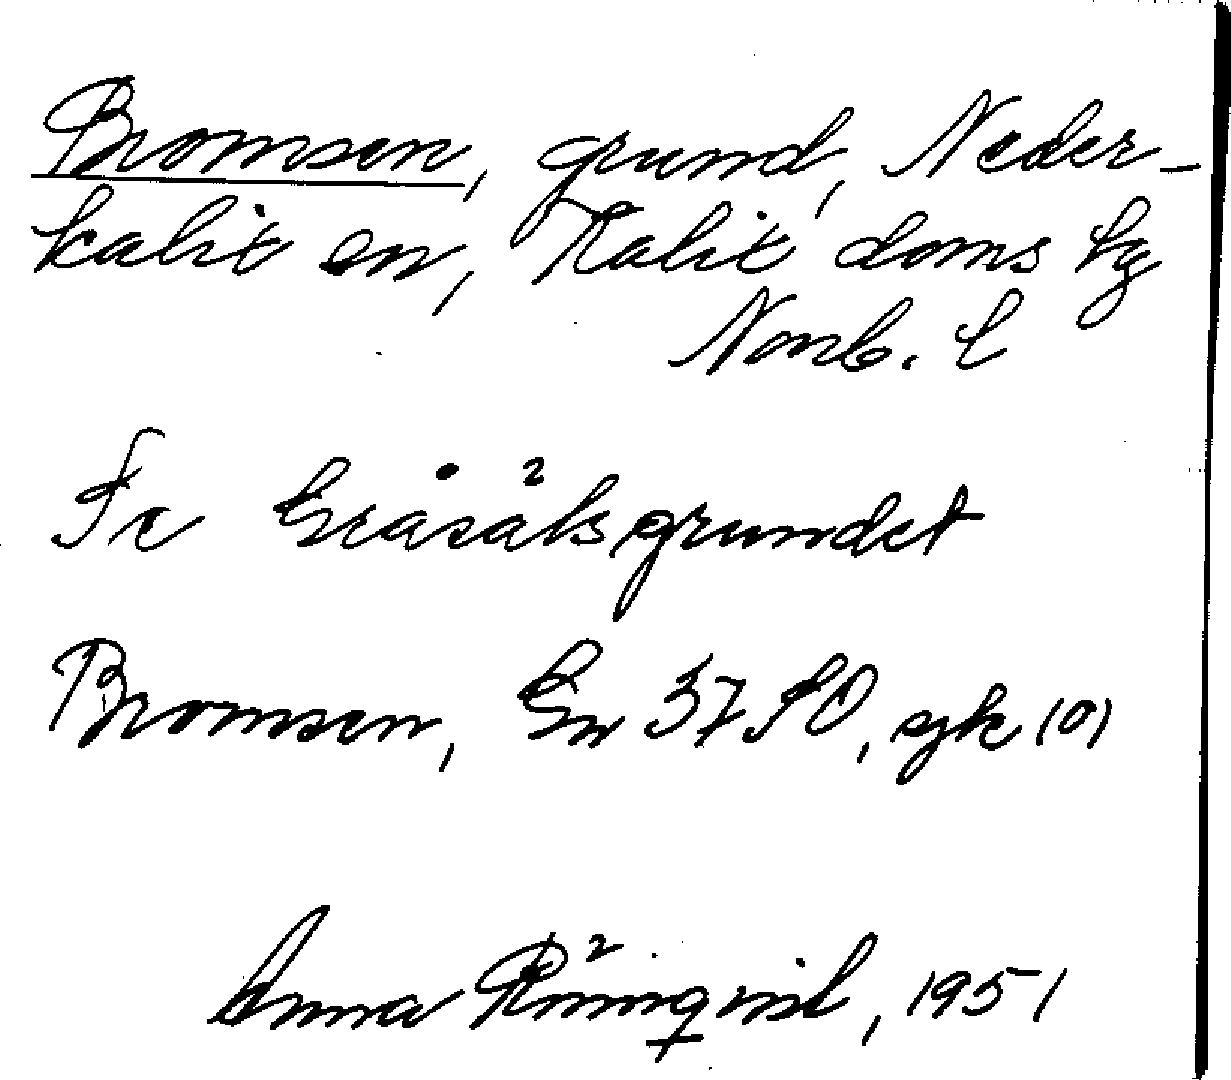 Bromsen, grund, Neder-
kalix sn, Kalix doms lg
Norrb. l
Se Gråsälsgrundet
Bromsen, Gn 37 SO, sjk (0)
Anna Rönnqvist, 1951